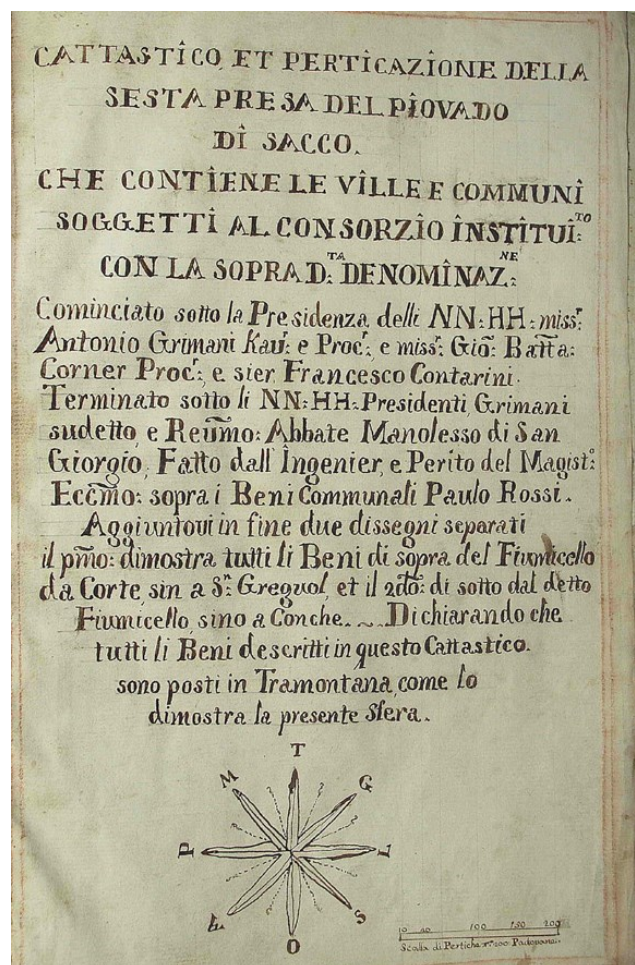 CATTASTICO, ET PERTICAZIONE DELLA
SESTA PRESA DEL PIOVADO
DI SACCO.
CHE CONTIENE LE VILLE E COMMUNI
SOGGETTI AL CONSORZIO INSTITUI:TO
CON LA SOPRA D:TA DENOMINAZ:NE
Cominciato sotto la Presidenza delli NN:HH: miss:r
Antonio Grimani Kau:r e Proc:r, e miss:r Gio: Batta:
Corner Proc:r, e sier Francesco Contarini.
Terminato sotto li NN:HH: Presidenti, Grimani
sudetto, e Reumo: Abbate Manolesso di San
Giorgio, Fatto dall' Ingenier, e Perito del Magist:o
Eccmo: sopra i Beni Communali Paulo Rossi.
Aggiuntovi in fine due dissegni separati
il pmo: dimostra tutti li Beni di sopra del Fiumicello
da Corte, sin a S:n Greguol, et il 2do: di sotto dal detto
Fiumicello, sino a Conche. ~ Dichiarando che
tutti li Beni descritti in questo Cattastico.
sono posti in Tramontana, come lo
dimostra la presente Sfera.
T
M G
P L
S
O
10 50 100 150 200
Scalla di Pertiche n:o 200 Padouane.